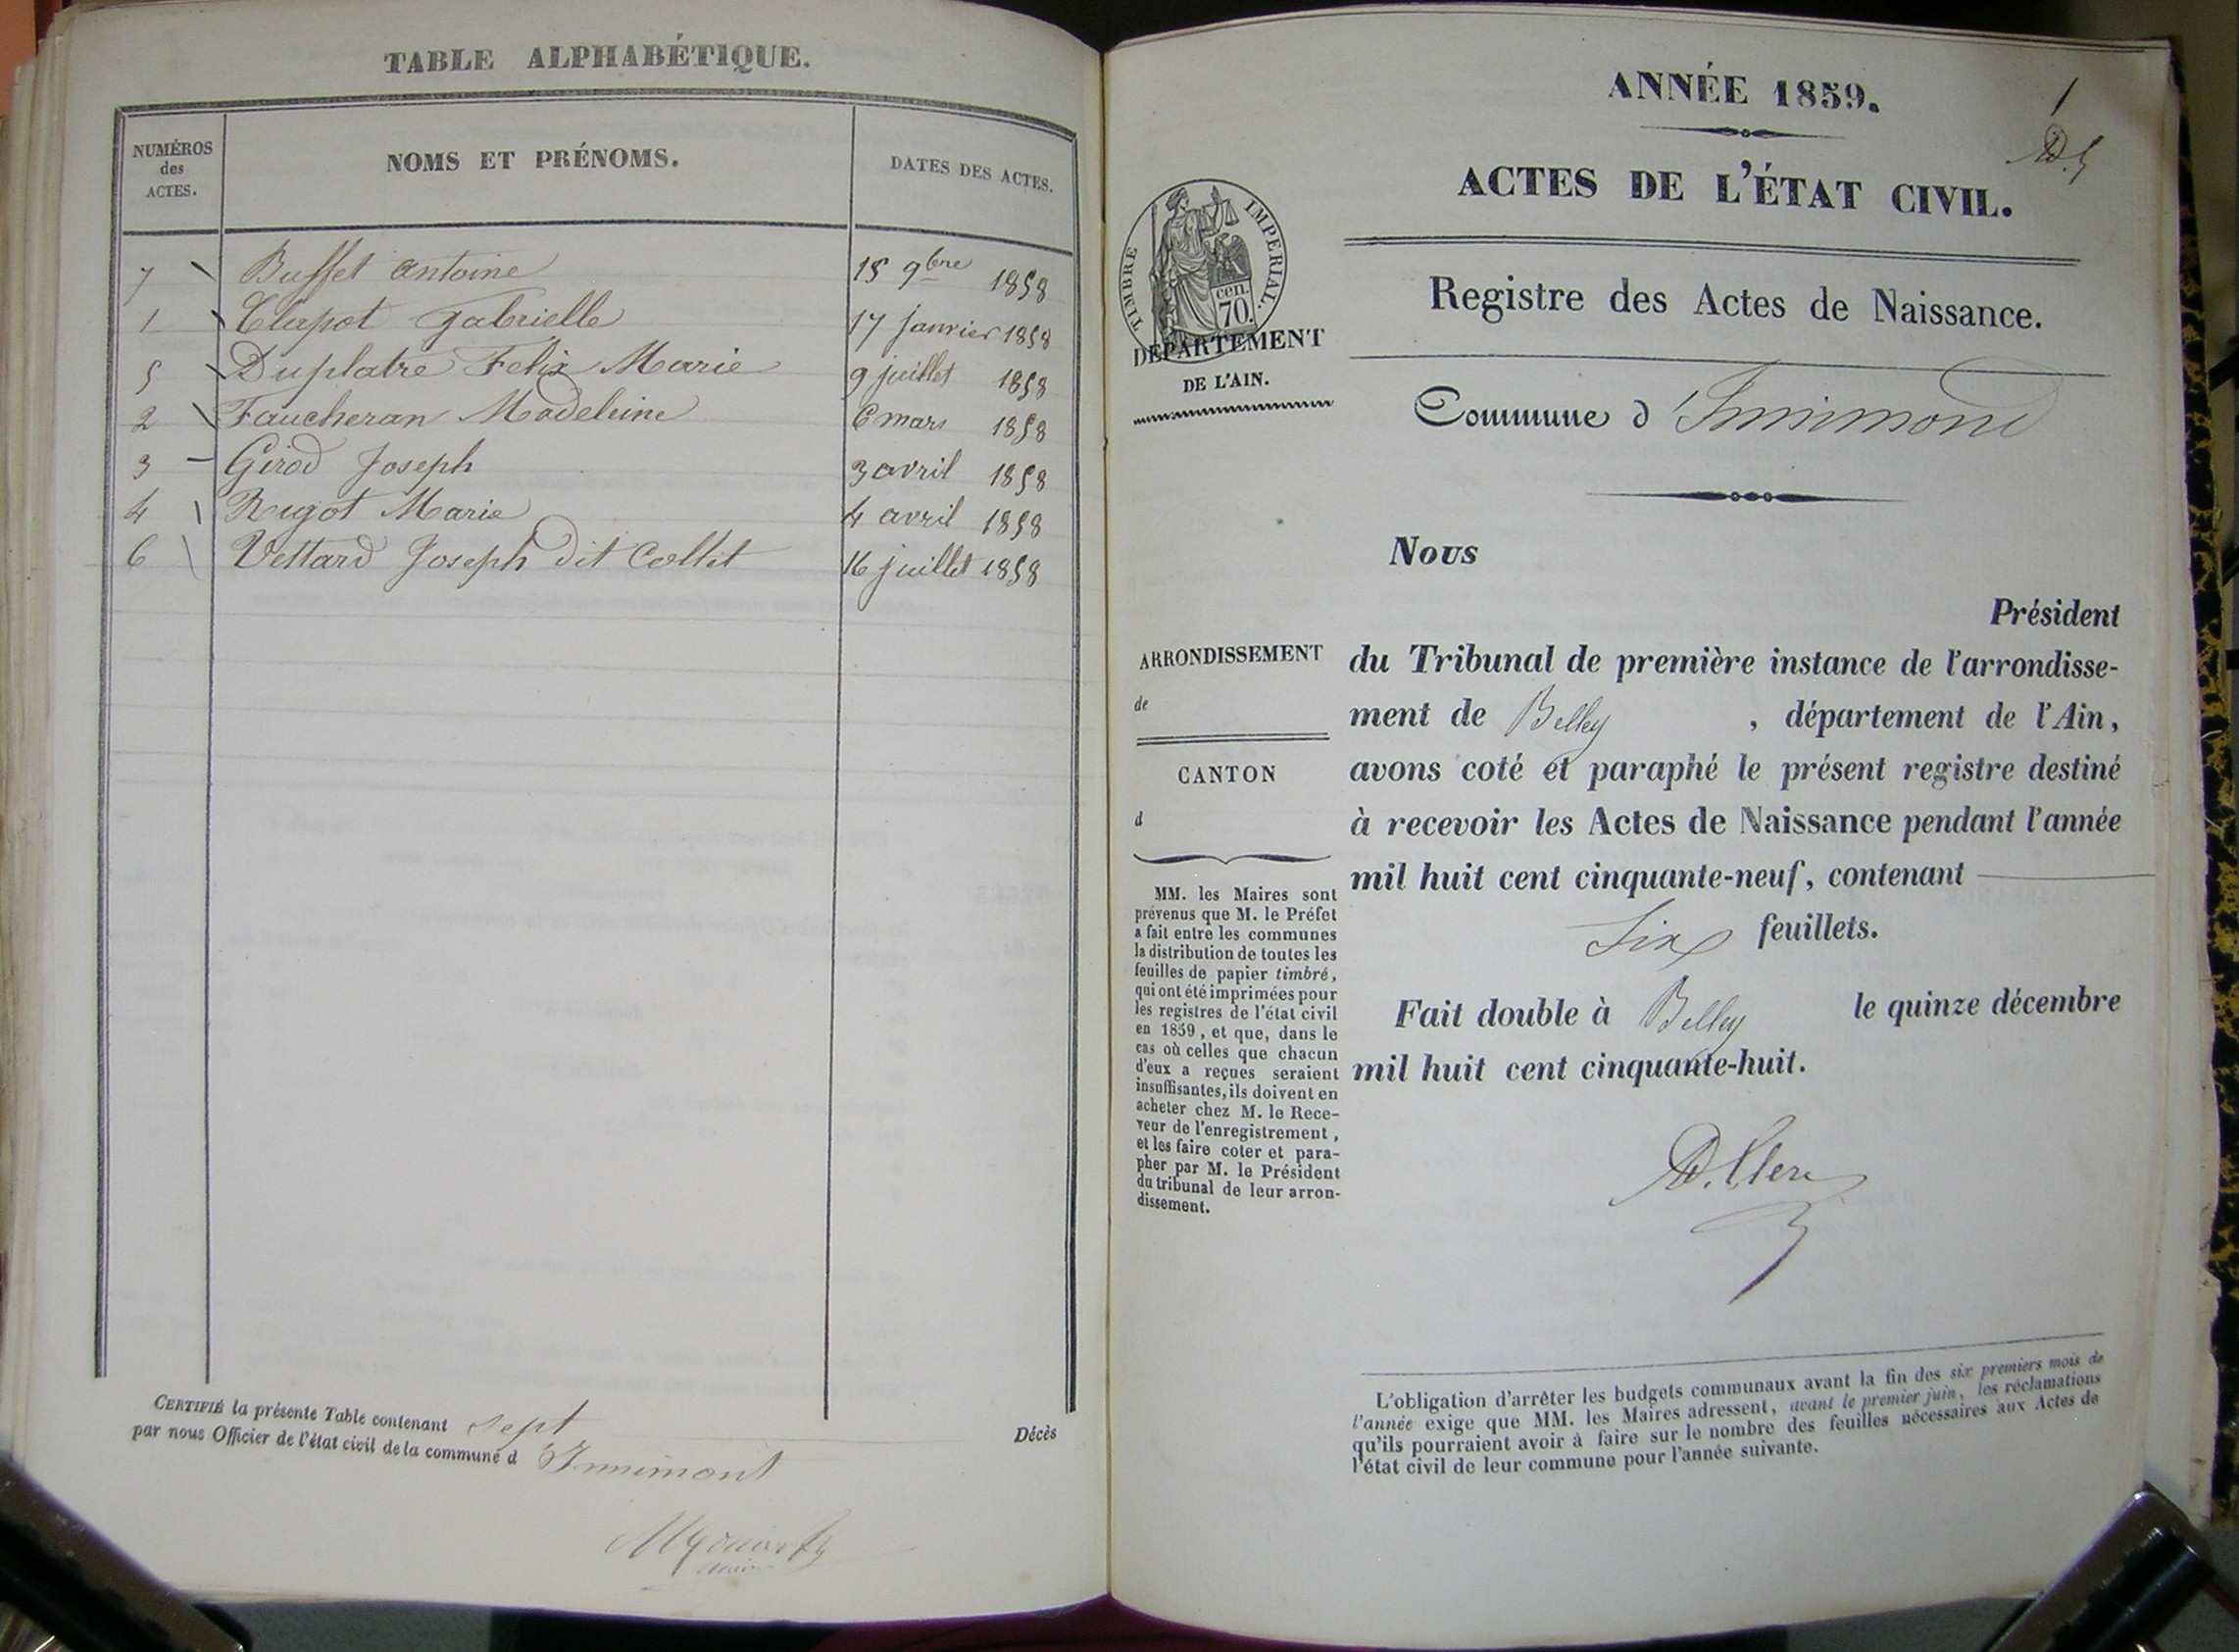 TABLE ALPHABÉTIQUE.
NUMÉROS des ACTES. NOMS ET PRÉNOMS. DATES DES ACTES.
7 Buffet Antoine 15 9bre 1858
1 Clapot Gabrielle 17 janvier 1858
5 Duplatre Felix Marie 9 juillet 1858
2 Faucheran Madeleine 6 mars 1858
3 Girod Joseph 3 avril 1858
4 Rugot Marie 4 avril 1858
6 Vettard Joseph dit Collit 16 juillet 1858
CERTIFIÉ la présente Table contenant sept Décès
par nous Officier de l'état civil de la commune d Innimont
ANNÉE 1859.
1
ACTES DE L'ÉTAT CIVIL.
Registre des Actes de Naissance.
TIMBRE IMPERIAL.
cen.
70.
DÉPARTEMENT
DE L'AIN.
Commune d'Innimond
Nous
Président
du Tribunal de première instance de l'arrondisse-
ment de Belley , département de l'Ain,
avons coté et paraphé le présent registre destiné
à recevoir les Actes de Naissance pendant l'année
mil huit cent cinquante-neuf, contenant
Six feuillets.
Fait double à Belley le quinze décembre
mil huit cent cinquante-huit.
D. Clerc
ARRONDISSEMENT
de
CANTON
d
MM. les Maires sont
prévenus que M. le Préfet
a fait entre les communes
la distribution de toutes les
feuilles de papier timbré,
qui ont été imprimées pour
les registres de l'état civil
en 1859, et que, dans le
cas où celles que chacun
d'eux a reçues seraient
insuffisantes, ils doivent en
acheter chez M. le Rece-
veur de l'enregistrement,
et les faire coter et para-
pher par M. le Président
du tribunal de leur arron-
dissement.
L'obligation d'arrêter les budgets communaux avant la fin des six premiers mois de
l'année exige que MM. les Maires adressent, avant le premier juin, les réclamations
qu'ils pourraient avoir à faire sur le nombre des feuilles nécessaires aux Actes de
l'état civil de leur commune pour l'année suivante.